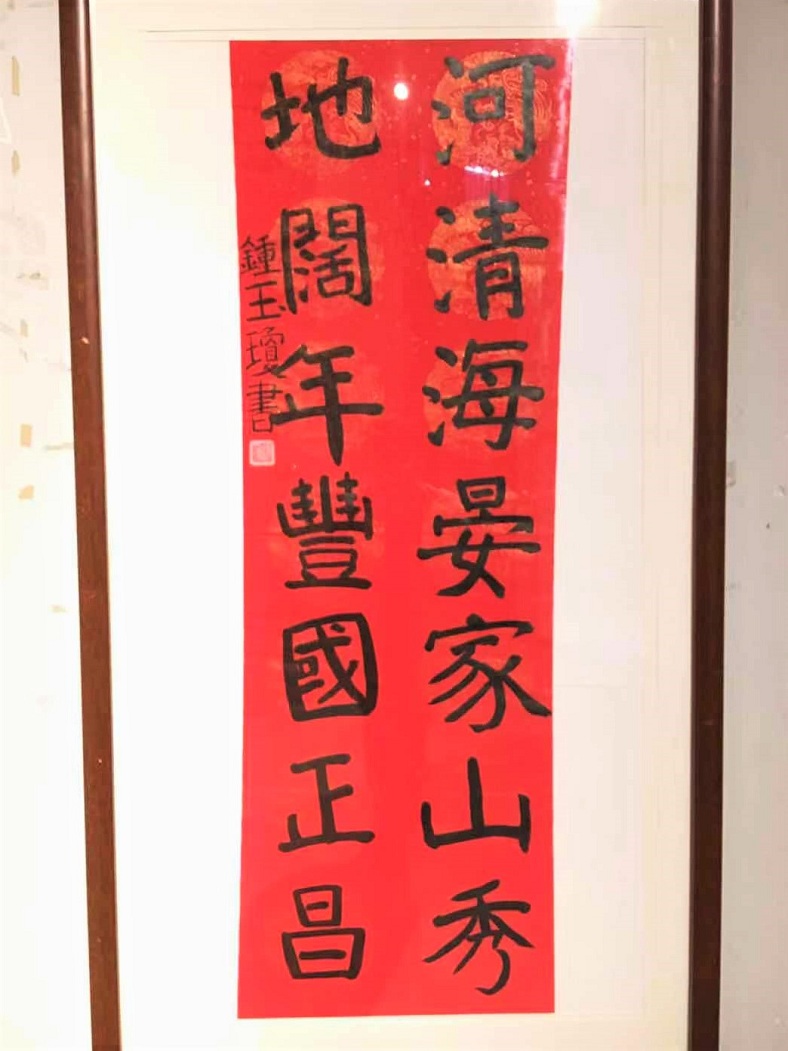 河清海晏家山秀
地闊年豐國正昌
鍾玉瓊書